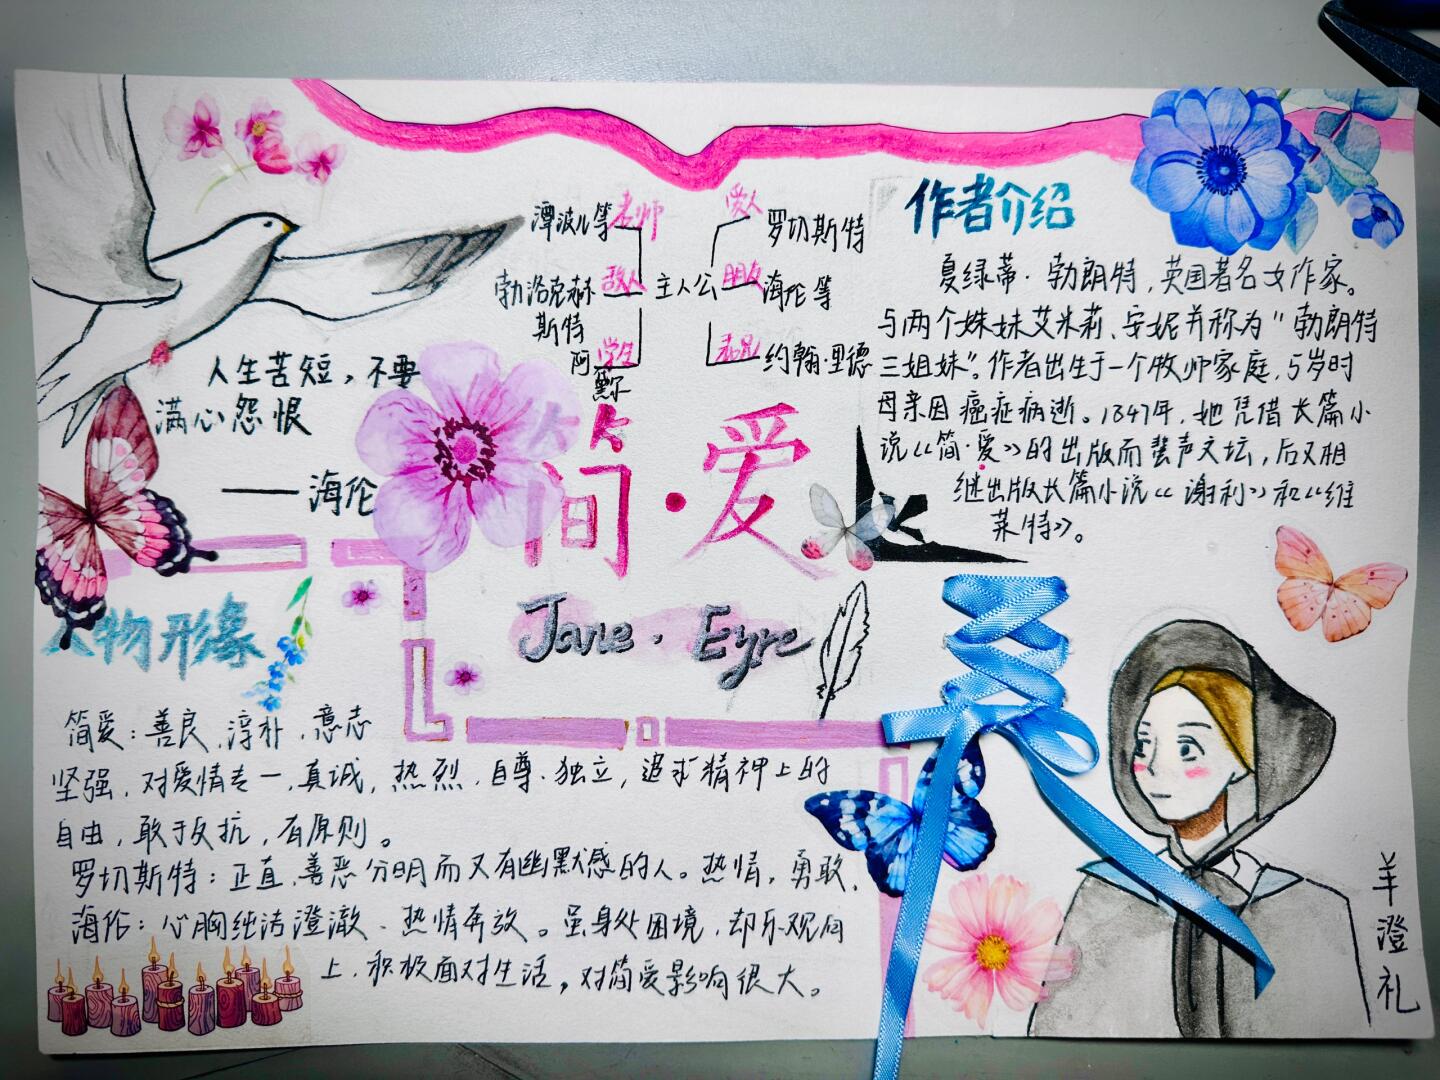 潭波儿等
老师
勃洛克赫
斯特
敌人
阿
黙尔
学生
主人公
爱人
罗切斯特
朋友
海伦等
表兄
约翰·里德
人生苦短，不要
满心怨恨
——海伦
简·爱
Jane · Eyre
作者介绍
夏绿蒂·勃朗特，英国著名女作家。
与两个姝妹艾米莉、安妮并称为"勃朗特
三姐妹"。作者出生于一个牧师家庭，5岁时
母亲因癌症病逝。1847年，她凭借长篇小
说《简·爱》的出版而蜚声文坛，后又相
继出版长篇小说《谢利》和《维
莱特》。
人物形象
简爱：善良、淳朴、意志
坚强，对爱情专一、真诚，热烈，自尊、独立，追求精神上的
自由，敢于反抗，有原则。
罗切斯特：正直、善恶分明而又有幽默感的人。热情，勇敢、
海伦：心胸纯洁澄澈、热情奔放。虽身处困境，却乐观向
上、积极面对生活，对简爱影响很大。
羊澄礼